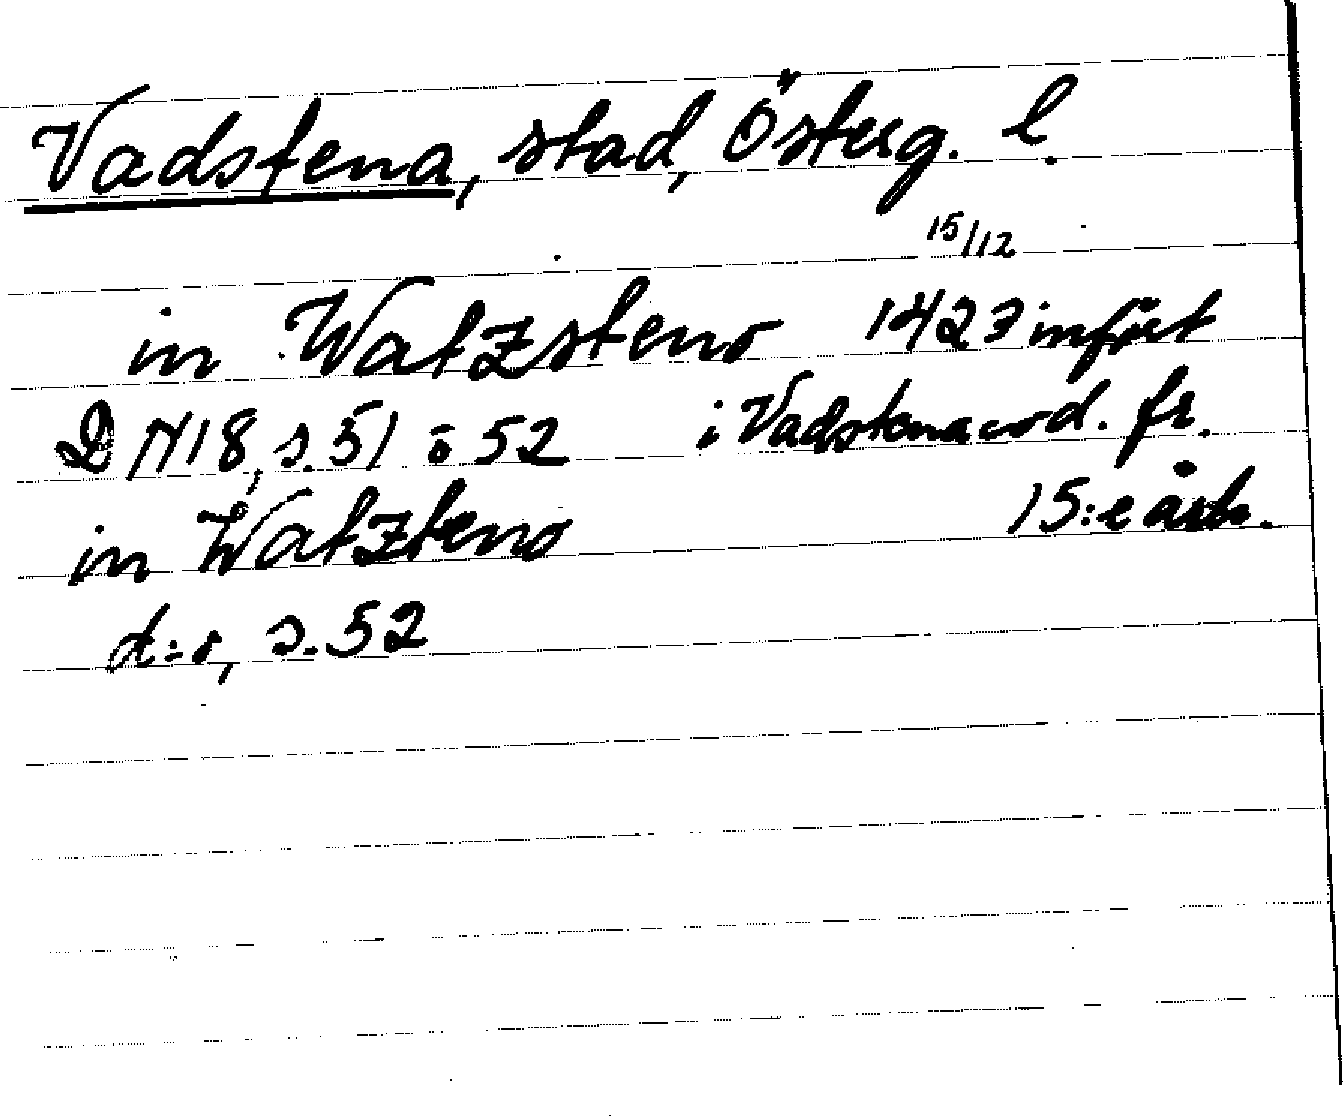 Vadstena, stad, Österg. l.
15/12
in Watzsteno 1427 infört
DN 18, s. 51 o 52 i Vadstena cod. fr.
in Watzteno 15:e årh.
d:o, s. 52